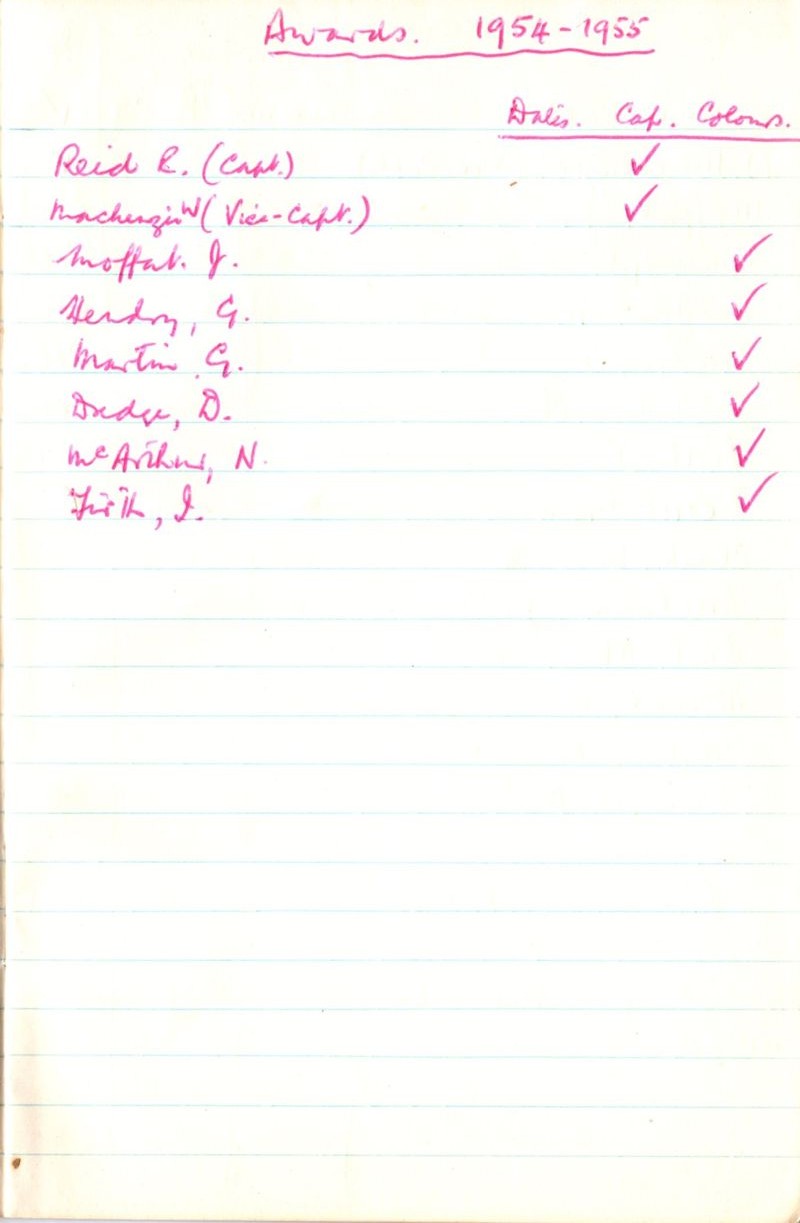 Awards. 1954-1955
Cap. Colours.
Reid R. (Capt.) ✓
Mackenzie W (Vice-Capt.) ✓
Moffat. J. ✓
Hendry, G. ✓
Martin G. ✓
D. ✓
McArthur, N. ✓
Firth, I. ✓